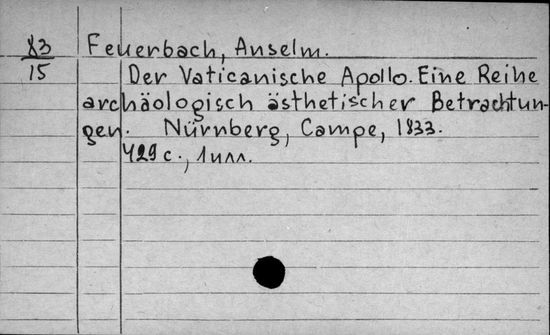 83 Feuerbach, Anselm.
15 Der Vaticanische Apollo. Eine Reihe
archäologisch ästhetischer Betrachtun-
gen. Nürnberg, Campe, 1833.
429 с., 1 илл.